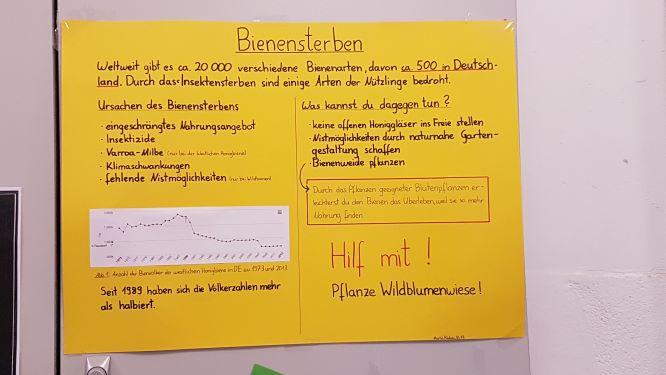 Bienensterben
Weltweit gibt es ca. 20 000 verschiedene Bienenarten, davon ca. 500 in Deutsch-
land. Durch das Insektensterben sind einige Arten der Nützlinge bedroht.
Ursachen des Bienensterbens
· eingeschrängtes Nahrungsangebot
· Insektizide
· Varroa-Milbe (nur bei der Westlichen Honigbiene)
· Klimaschwankungen
· fehlende Nistmöglichkeiten (nur bei Wildbienen)
Abb. 1: Anzahl der Bienvölker der westlichen Honigbiene in DE zw. 1973 und 2013
Seit 1989 haben sich die Völkerzahlen mehr
als halbiert.
Was kannst du dagegen tun?
· keine offenen Honiggläser ins Freie stellen
· Nistmöglichkeiten durch naturnahe Garten-
gestaltung schaffen
· Bienenweide pflanzen
Durch das Pflanzen geeigneter Blütenpflanzen er-
leichterst du den Bienen das Überleben, weil sie so mehr
Nahrung finden
Hilf mit!
Pflanze Wildblumenwiese!